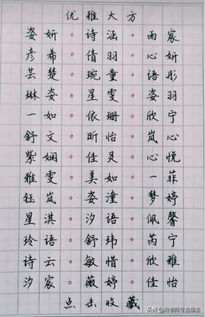 优雅大方
姿妍 诗涵 雨宸
彦希 倩羽 心妍
芸楚 琬童 语彤
琳姿 星雯 姿羽
一如 依珊 欣宁
舒文 昕怡 岚心
紫娴 佳灵 心悦
雅雯 美如 一菲
钰岚 姿潼 梦婷
星淇 汐语 佩馨
玲语 舒玮 芮宁
诗云 敏惜 欣雅
汐宸 薇婷 佳怡
点击收藏